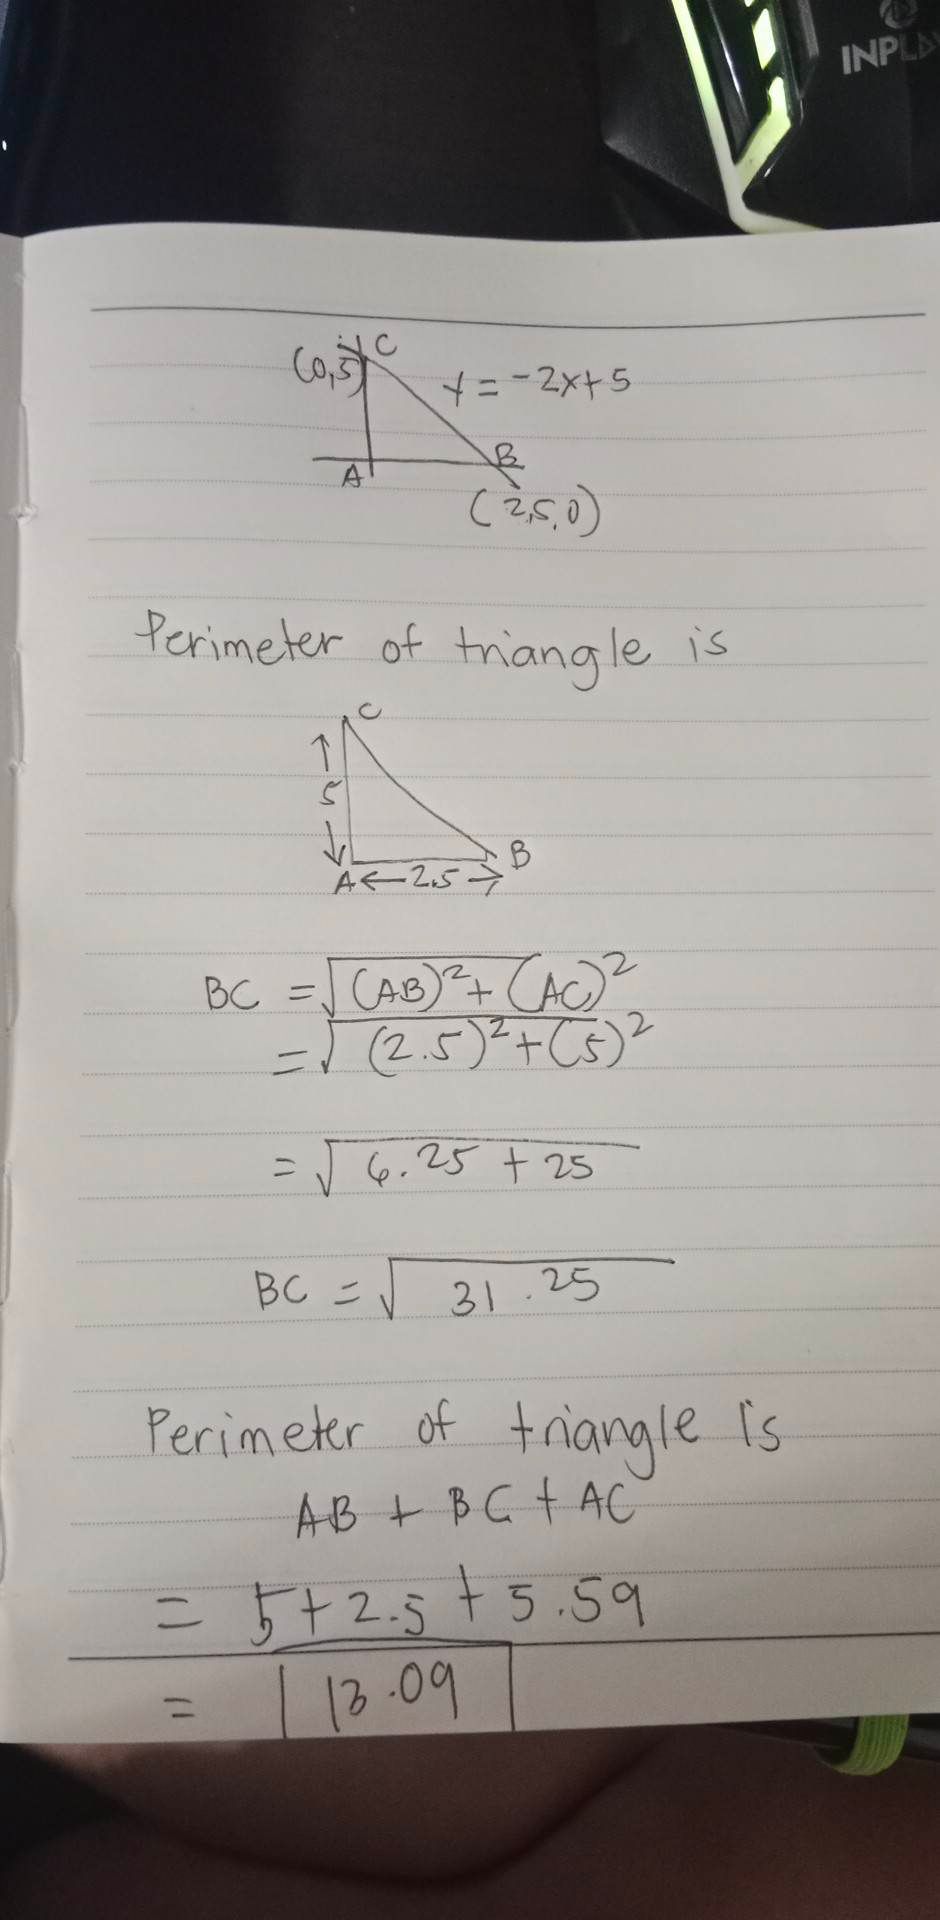 INPLAY
C
(0,5)
y = -2x+5
A
B
(2,5,0)
Perimeter of triangle is
C
5
B
A ← 2.5 →
BC = √(AB)² + (AC)²
= √(2.5)² + (5)²
= √6.25 + 25
BC = √31.25
Perimeter of triangle is
AB + BC + AC
= 5 + 2.5 + 5.59
= 13.09